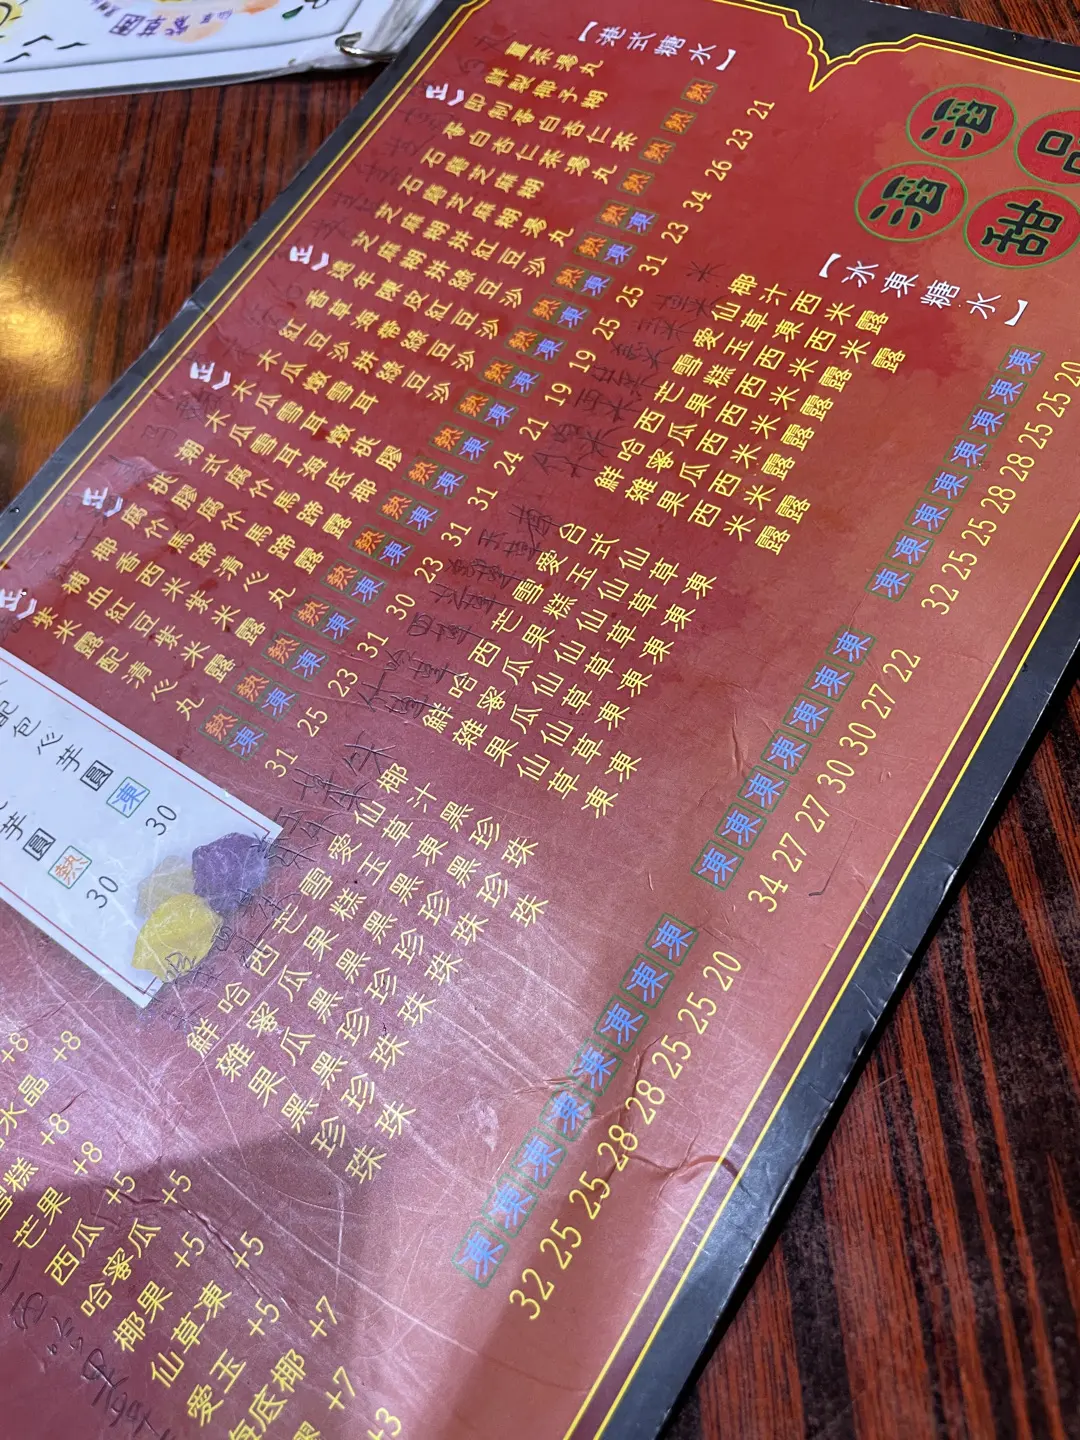 滔滔
甜品
【港式糖水】
薑茶湯丸 熱 21
鮮製椰子糊 熱 23
正 即制蛋白杏仁茶 熱 26
蛋白杏仁茶湯丸 熱 34
石磨芝麻糊 熱 凍 23
石磨芝麻糊湯丸 熱 凍 31
芝麻糊拼紅豆沙 熱 凍 25
芝麻糊拼綠豆沙 熱 凍 25
正 遠年陳皮紅豆沙 熱 凍 19
香草海帶綠豆沙 熱 凍 19
紅豆沙拼綠豆沙 熱 凍 21
木瓜燉雪耳 熱 凍 24
正 木瓜雪耳燉桃膠 熱 凍 31
木瓜雪耳海底椰 熱 凍 31
潮式腐竹馬蹄露 熱 凍 23
桃膠腐竹馬蹄露 熱 凍 30
正 腐竹馬蹄清心丸 熱 凍 31
椰香西米紫米露 熱 凍 23
補血紅豆紫米露 熱 凍 25
正 紫米露配清心丸 熱 凍 31
【冰凍糖水】
椰汁西米露 凍 20
仙草凍西米露 凍 25
愛玉西米露 凍 25
雪糕西米露 凍 28
芒果西米露 凍 28
西瓜西米露 凍 25
哈蜜瓜西米露 凍 25
鮮雜果西米露 凍 32
台式仙草凍 凍 22
愛玉仙草凍 凍 27
雪糕仙草凍 凍 30
芒果仙草凍 凍 30
西瓜仙草凍 凍 27
哈蜜瓜仙草凍 凍 27
鮮雜果仙草凍 凍 34
椰汁黑珍珠 凍 20
仙草凍黑珍珠 凍 25
愛玉黑珍珠 凍 25
雪糕黑珍珠 凍 28
芒果黑珍珠 凍 28
西瓜黑珍珠 凍 25
哈蜜瓜黑珍珠 凍 25
鮮雜果黑珍珠 凍 32
配包心芋圓 凍 30
芋圓 熱 30
+8
+8
水晶 +8
雪糕 +8
芒果 +5
西瓜 +5
哈蜜瓜 +5
椰果 +5
仙草凍 +5
愛玉 +7
海底椰 +7
膠 +3